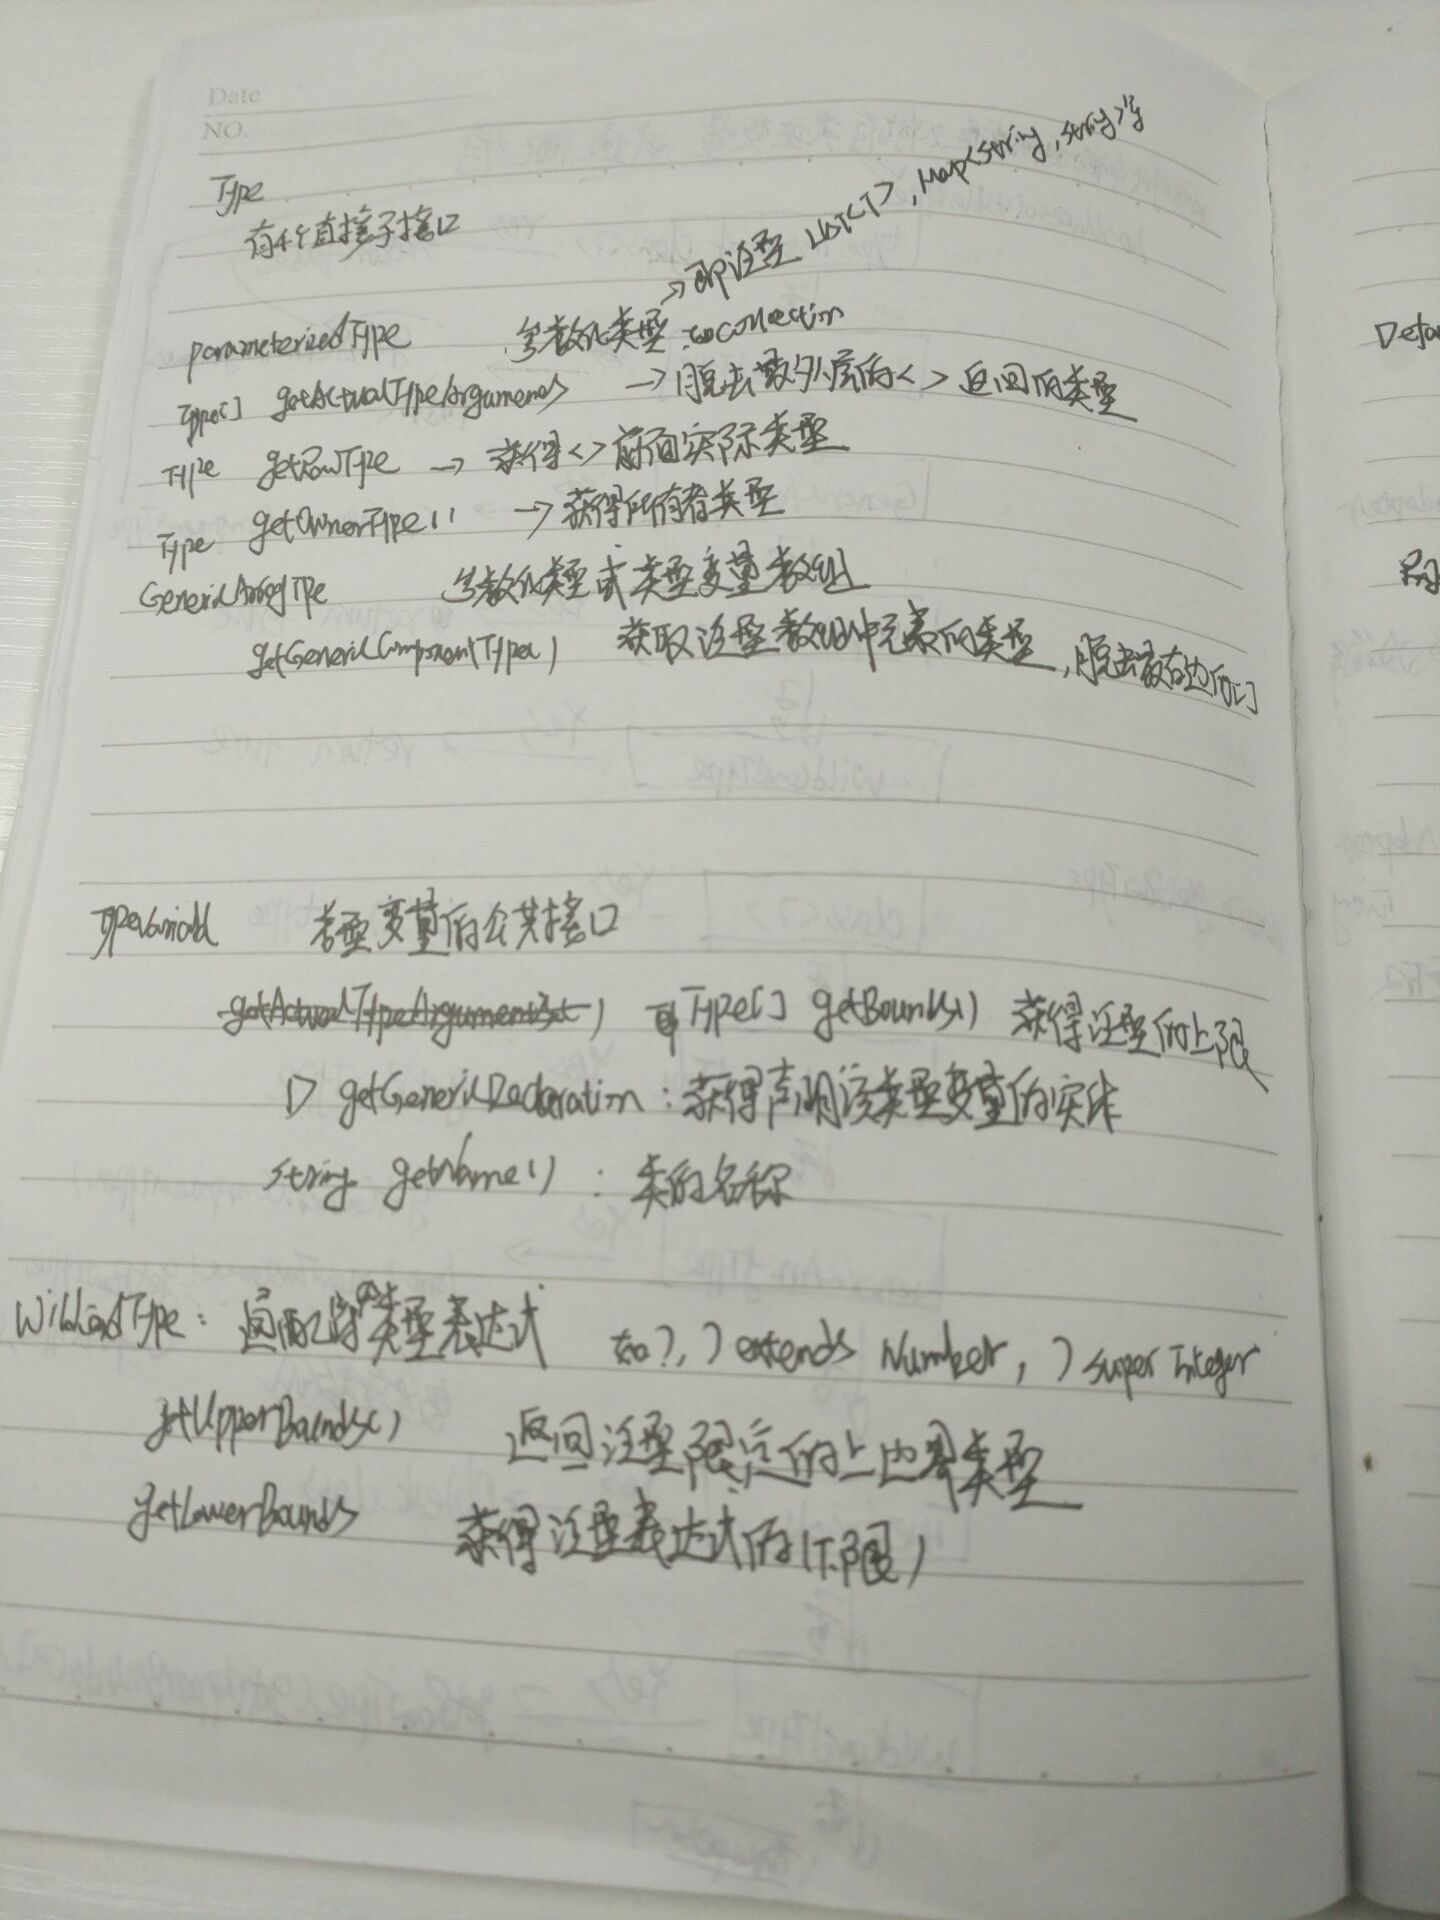 Date
NO.
Type
有4个直接子接口
parameterizedType 参数化类型 如collection
→即泛型 List<T>, Map<string, string>等
Type[] getActualTypeArguments → 脱去最外层的<>返回的类型
Type getRawType → 获得<>前面实际类型
Type getOwnerType() → 获得所有者类型
GenericArrayType 参数化类型或类型变量数组
getGenericComponentType() 获取泛型数组中元素的类型,脱去最右边的[]
TypeVariabl 类型变量的公共接口
getActualTypeArguments() Type[] getBounds() 获得泛型的上限
D getGenericDeclaration: 获得声明该类型变量的实体
string getName() : 类的名称
WildcardType: 通配符类型表达式 如?, ? extends Number, ? super Integer
getUpperBounds() 返回泛型限定的上边界类型
getLowerBounds 获得泛型表达式的(下限)